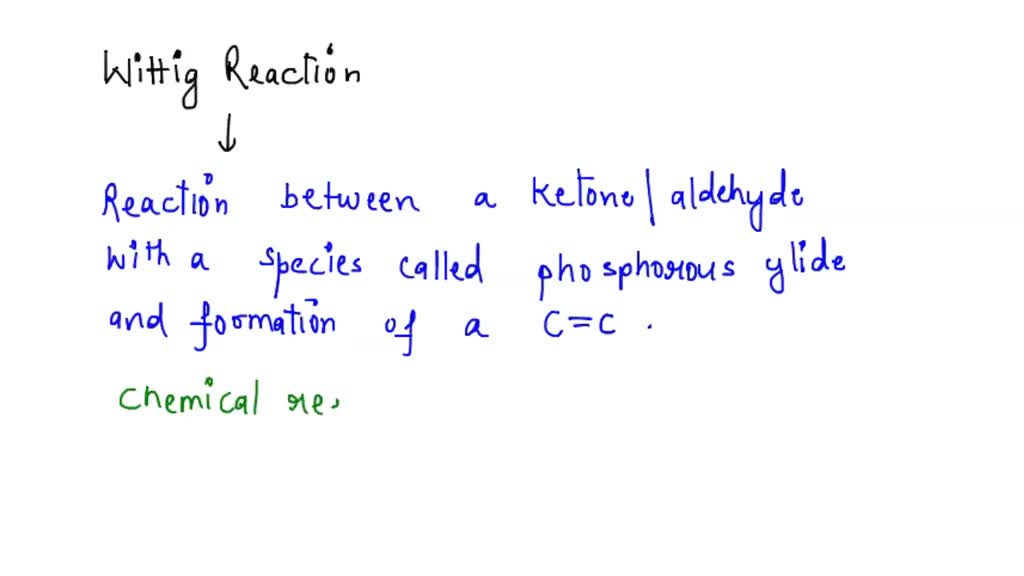 Wittig Reaction
↓
Reaction between a ketone/aldehyde
with a species called phosphorous ylide
and formation of a C=C .
Chemical re